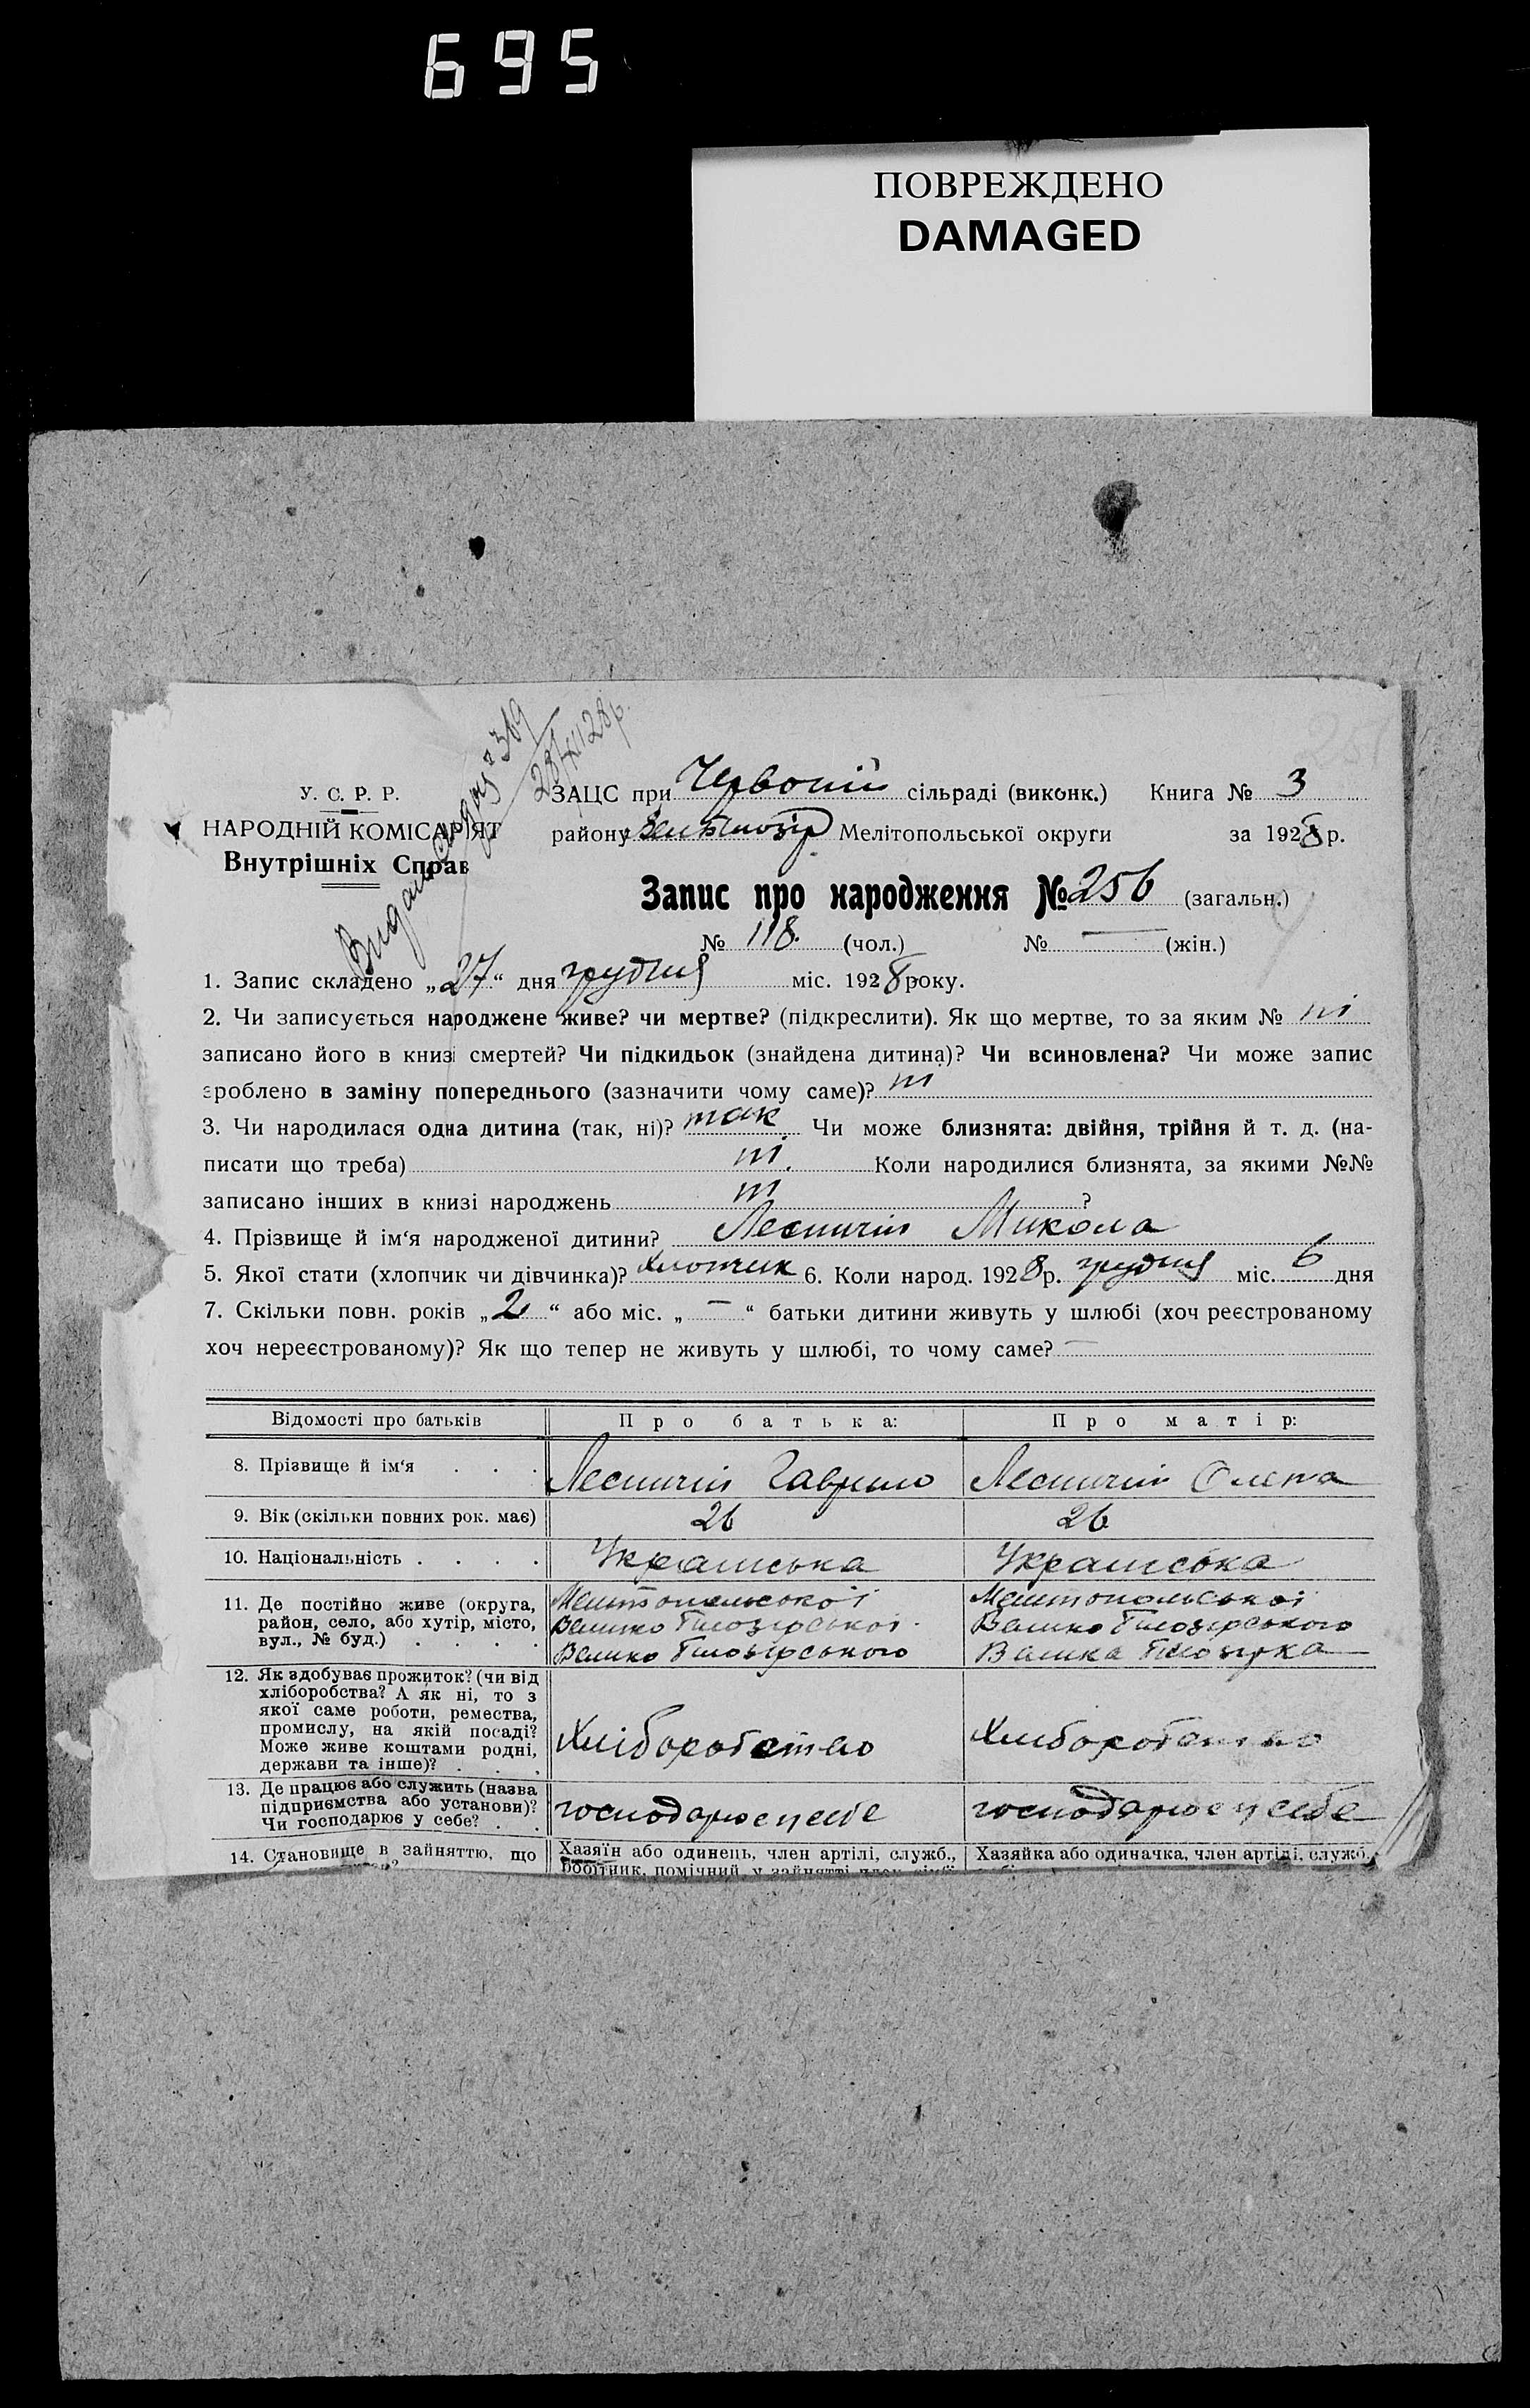 695
ПОВРЕЖДЕНО
DAMAGED
Видано № 369
28/XII 28р.
У. С. Р. Р.
НАРОДНІЙ КОМІСАР'ЯТ
Внутрішніх Справ
ЗАЦС при Червоній сільраді (виконк.) Книга № 3
району Мелітопольської округи за 1928 р.
Запис про народження № 256 (загальн.)
№ 118. (чол.) № — (жін.)
1. Запис складено „27“ дня грудня міс. 1928 року.
2. Чи записується народжене живе? чи мертве? (підкреслити). Як що мертве, то за яким № ні
записано його в книзі смертей? Чи підкидьок (знайдена дитина)? Чи всиновлена? Чи може запис
зроблено в заміну попереднього (зазначити чому саме)? ні
3. Чи народилася одна дитина (так, ні)? так Чи може близнята: двійня, трійня й т. д. (на-
писати що треба) ні. Коли народилися близнята, за якими №№
записано інших в книзі народжень ні ?
4. Прізвище й ім‘я народженої дитини? Лесничій Микола
5. Якої стати (хлопчик чи дівчинка)? хлопчик 6. Коли народ. 1928 р. грудня міс. 6 дня
7. Скільки повн. років „2“ або міс. „—“ батьки дитини живуть у шлюбі (хоч реєстрованому
хоч нереєстрованому)? Як що тепер не живуть у шлюбі, то чому саме? —
Відомості про батьків Про батька: Про матір:
8. Прізвище й ім‘я . . . Лесничій Гаврило Лесничій Олена
9. Вік (скільки повних рок. має) 26 26
10. Національність . . . . Українська Українська
11. Де постійно живе (округа,
район, село, або хутір, місто,
вул., № буд.) . . . .
Мелітопольської
Велико Білозірської
Велико Білозірського
Мелітопольської
Велико Білозірського
Велика Білозірка
12. Як здобуває прожиток? (чи від
хліборобства? А як ні, то з
якої саме роботи, ремества,
промислу, на якій посаді?
Може живе коштами родні,
держави та інше)? . . .
Хліборобство
Хліборобство
13. Де працює або служить (назва
підприємства або установи)?
Чи господарює у себе? . .
господарює у себе
господарює у себе
14. Становище в зайняттю, що
Хазяїн або одинець, член артілі, служб.,
робітник, помічний у зайнятті член сім'ї
Хазяйка або одиначка, член артілі, служб.,